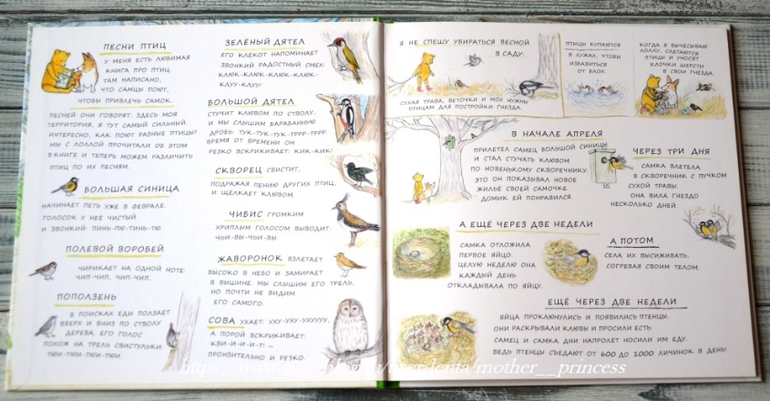 ПЕСНИ ПТИЦ
У МЕНЯ ЕСТЬ ЛЮБИМАЯ
КНИГА ПРО ПТИЦ.
ТАМ НАПИСАНО,
ЧТО САМЦЫ ПОЮТ,
ЧТОБЫ ПРИВЛЕЧЬ САМОК.
ПЕСНЕЙ ОНИ ГОВОРЯТ: ЗДЕСЬ МОЯ
ТЕРРИТОРИЯ, Я ТУТ САМЫЙ СИЛЬНЫЙ.
ИНТЕРЕСНО, КАК ПОЮТ РАЗНЫЕ ПТИЦЫ?
МЫ С ЛОЛЛОЙ ПРОЧИТАЛИ ОБ ЭТОМ
В КНИГЕ И ТЕПЕРЬ МОЖЕМ РАЗЛИЧИТЬ
ПТИЦ ПО ИХ ПЕСНЯМ.
БОЛЬШАЯ СИНИЦА
НАЧИНАЕТ ПЕТЬ УЖЕ В ФЕВРАЛЕ.
ГОЛОСОК У НЕЁ ЧИСТЫЙ
И ЗВОНКИЙ: ПИНЬ-ТЮ-ТИНЬ-ТЮ.
ПОЛЕВОЙ ВОРОБЕЙ
ЧИРИКАЕТ НА ОДНОЙ НОТЕ:
ЧИП-ЧИП, ЧИП-ЧИП.
ПОПОЛЗЕНЬ
В ПОИСКАХ ЕДЫ ПОЛЗАЕТ
ВВЕРХ И ВНИЗ ПО СТВОЛУ
ДЕРЕВА. ЕГО ГОЛОС
ПОХОЖ НА ТРЕЛЬ СВИСТУЛЬКИ:
ТЮИ-ТЮИ-ТЮИ-ТЮИ.
ЗЕЛЁНЫЙ ДЯТЕЛ
ЕГО КЛЁКОТ НАПОМИНАЕТ
ЗВОНКИЙ РАДОСТНЫЙ СМЕХ:
КЛЮК-КЛЮК-КЛЮК-КЛЮК-
КЛУУ-КЛУУ!
БОЛЬШОЙ ДЯТЕЛ
СТУЧИТ КЛЮВОМ ПО СТВОЛУ,
И МЫ СЛЫШИМ БАРАБАННУЮ
ДРОБЬ: ТУК-ТУК-ТУК-ТРРР-ТРРР.
ВРЕМЯ ОТ ВРЕМЕНИ ОН
РЕЗКО ВСКРИКИВАЕТ: КИК-КИК!
СКВОРЕЦ СВИСТИТ,
ПОДРАЖАЯ ПЕНИЮ ДРУГИХ ПТИЦ,
И ЩЁЛКАЕТ КЛЮВОМ.
ЧИБИС ГРОМКИМ
ХРИПЛЫМ ГОЛОСОМ ВЫВОДИТ:
ЧЬИ-ВЫ-ЧЬИ-ВЫ.
ЖАВОРОНОК ВЗЛЕТАЕТ
ВЫСОКО В НЕБО И ЗАМИРАЕТ
В ВЫШИНЕ. МЫ СЛЫШИМ ЕГО ТРЕЛЬ,
НО ПОЧТИ НЕ ВИДИМ
ЕГО САМОГО.
СОВА УХАЕТ: УХУ-УХУ-УХУУУУ,
А ПОРОЙ ВСКРИКИВАЕТ:
КВИ-И-И-И-Т! —
ПРОНЗИТЕЛЬНО И РЕЗКО.
Я НЕ СПЕШУ УБИРАТЬСЯ ВЕСНОЙ
В САДУ:
СУХАЯ ТРАВА, ВЕТОЧКИ И МОХ НУЖНЫ
ПТИЦАМ ДЛЯ ПОСТРОЙКИ ГНЕЗДА.
ПТИЦЫ КУПАЮТСЯ
В ЛУЖАХ, ЧТОБЫ
ИЗБАВИТЬСЯ
ОТ БЛОХ.
КОГДА Я ВЫЧЁСЫВАЮ
ЛОЛЛУ, СЛЕТАЮТСЯ
ПТИЦЫ И УНОСЯТ
КЛОЧКИ ШЕРСТИ
В СВОИ ГНЁЗДА.
В НАЧАЛЕ АПРЕЛЯ
ПРИЛЕТЕЛ САМЕЦ БОЛЬШОЙ СИНИЦЫ
И СТАЛ СТУЧАТЬ КЛЮВОМ
ПО НОВЕНЬКОМУ СКВОРЕЧНИКУ.
ЭТО ОН ПОКАЗЫВАЛ НОВОЕ
ЖИЛЬЁ СВОЕЙ САМОЧКЕ.
ДОМИК ЕЙ ПОНРАВИЛСЯ.
ЧЕРЕЗ ТРИ ДНЯ
САМКА ВЛЕТЕЛА
В СКВОРЕЧНИК С ПУЧКОМ
СУХОЙ ТРАВЫ.
ОНА ВИЛА ГНЕЗДО
НЕСКОЛЬКО ДНЕЙ.
А ЕЩЁ ЧЕРЕЗ ДВЕ НЕДЕЛИ
САМКА ОТЛОЖИЛА
ПЕРВОЕ ЯЙЦО.
ЦЕЛУЮ НЕДЕЛЮ ОНА
КАЖДЫЙ ДЕНЬ
ОТКЛАДЫВАЛА ПО ЯЙЦУ.
А ПОТОМ
СЕЛА ИХ ВЫСИЖИВАТЬ,
СОГРЕВАЯ СВОИМ ТЕЛОМ.
ЕЩЁ ЧЕРЕЗ ДВЕ НЕДЕЛИ
ЯЙЦА ПРОКЛЮНУЛИСЬ И ПОЯВИЛИСЬ ПТЕНЦЫ.
ОНИ РАСКРЫВАЛИ КЛЮВЫ И ПРОСИЛИ ЕСТЬ.
САМЕЦ И САМКА ДНИ НАПРОЛЁТ НОСИЛИ ИМ ЕДУ.
ВЕДЬ ПТЕНЦЫ СЪЕДАЮТ ОТ 600 ДО 1000 ЛИЧИНОК В ДЕНЬ!
mother__princess